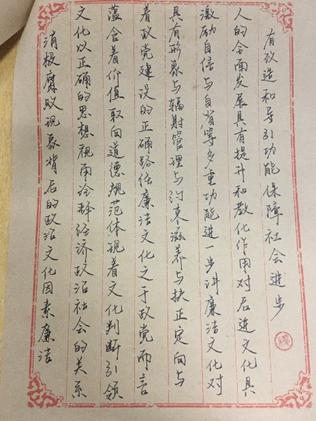 消极腐败现象背后的政治文化因素廉洁
文化以正确的思想视角诠释经济政治社会的关系
蕴含着价值取向道德规范体现着文化判断引领
着政党建设的正确路径廉洁文化之于政党而言
具有形象与辐射管理与约束滋养与扶正定向与
激励自信与自省等多重功能进一步讲廉洁文化对
人的全面发展具有提升和教化作用对后进文化具
有改造和导引功能保障社会进步